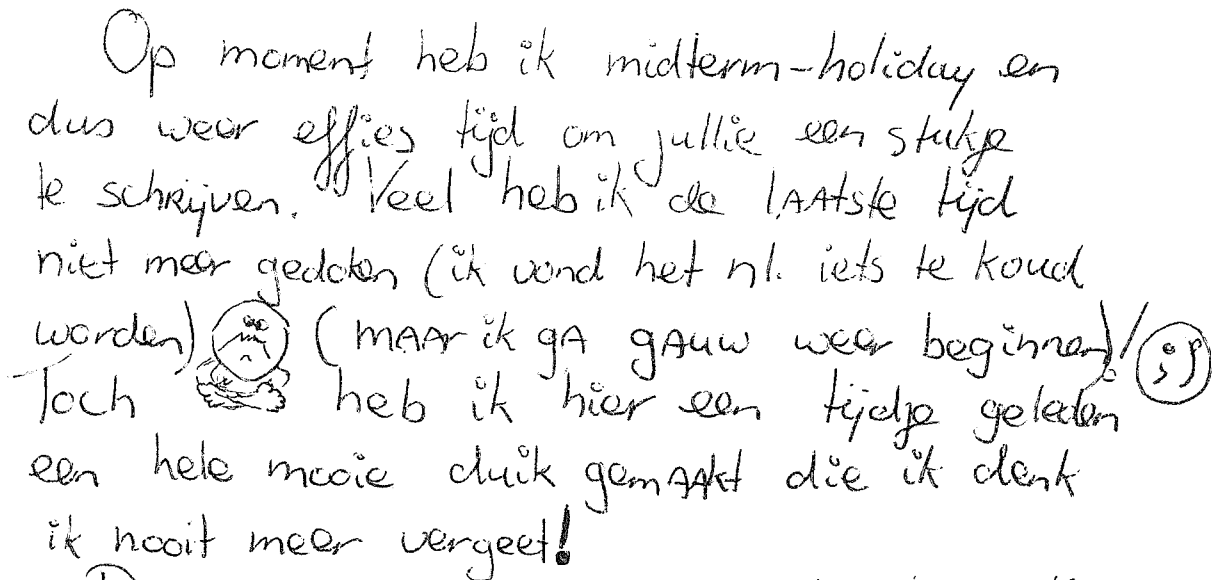 Op moment heb ik midterm-holiday en
dus weer effies tijd om jullie een stukje
te schrijven. Veel heb ik de lAAtste tijd
niet meer gedoken (ik vond het nl. iets te koud
worden) (mAAr ik gA gAuw weer beginnen)!
Toch heb ik hier een tijdje geleden
een hele mooie duik gemAAkt die ik denk
ik nooit meer vergeet!